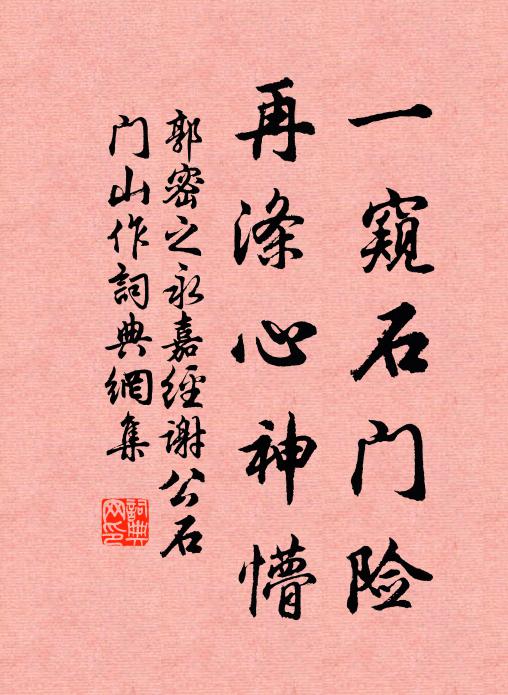 一窥石门险
再涤心神懵
郭密之永嘉經谢公石
门山作詞典網集
詞典
网印